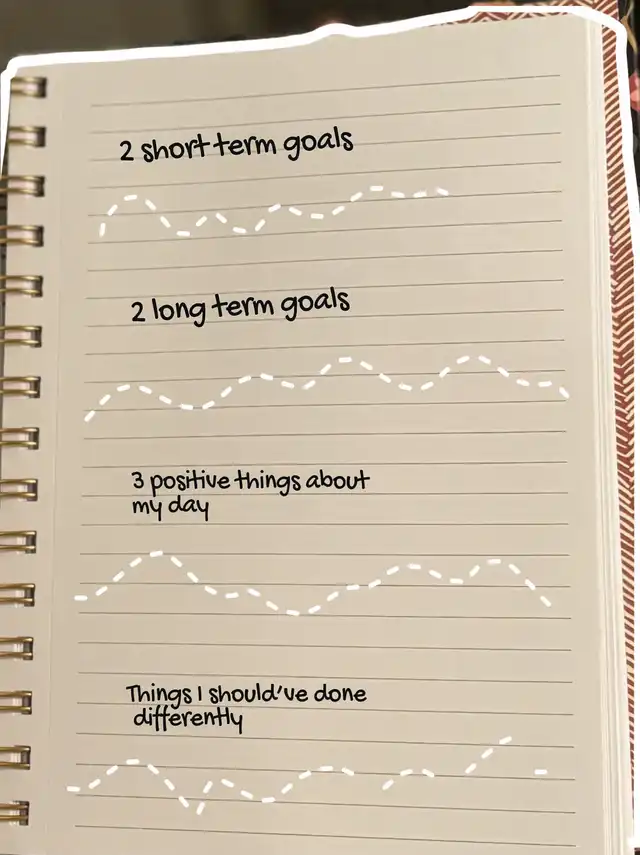 2 short term goals
2 long term goals
3 positive things about
my day
Things I should've done
differently